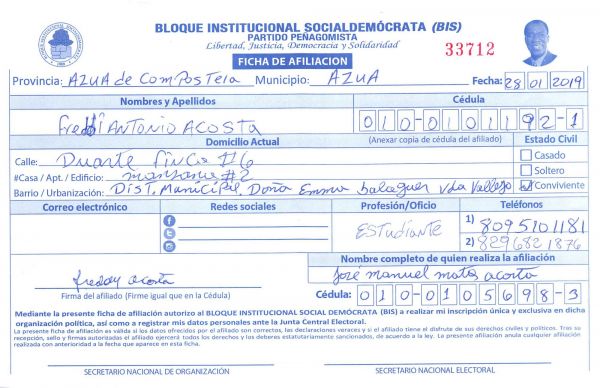 BLOQUE INSTITUCIONAL SOCIALDEMÓCRATA (BIS)
PARTIDO PEÑAGOMISTA
Libertad, Justicia, Democracia y Solidaridad
FICHA DE AFILIACIÓN
33712
Provincia: AZUA de Compostela Municipio: AZUA Fecha: 28 01 2019
Nombres y Apellidos Cédula
Freddi ANTONIO ACOSTA 010-0101192-1
Domicilio Actual (Anexar copia de cédula del afiliado) Estado Civil
Calle: Duarte Finca #6 Casado
#Casa / Apt. / Edificio: manzana #2 Soltero
Barrio / Urbanización: Dist. Municipal Doña Emma balaguer vda Vallejo Conviviente
Correo electrónico Redes sociales Profesión/Oficio Teléfonos
ESTudiANTe 1) 8095101181
2) 8296821876
Nombre completo de quien realiza la afiliación
freddy acosta José manuel matos acosta
Firma del afiliado (Firme igual que en la Cédula) Cédula: 010-0105698-3
Mediante la presente ficha de afiliación autorizo al BLOQUE INSTITUCIONAL SOCIAL DEMÓCRATA (BIS) a realizar mi inscripción única y exclusiva en dicha
organización política, así como a registrar mis datos personales ante la Junta Central Electoral.
La presente ficha de afiliación es válida si los datos ofrecidos por el afiliado son correctos, las declaraciones veraces y si el afiliado tiene el disfrute de sus derechos civiles y políticos. Tras su
recepción, sello y firmas autorizadas el afiliado ejercerá todos los derechos y los deberes estatutariamente sancionados, de acuerdo a la ley. La presente afiliación anula cualquier afiliación
realizada con anterioridad a la fecha que aparece en esta ficha.
SECRETARIO NACIONAL DE ORGANIZACIÓN SECRETARIO NACIONAL ELECTORAL